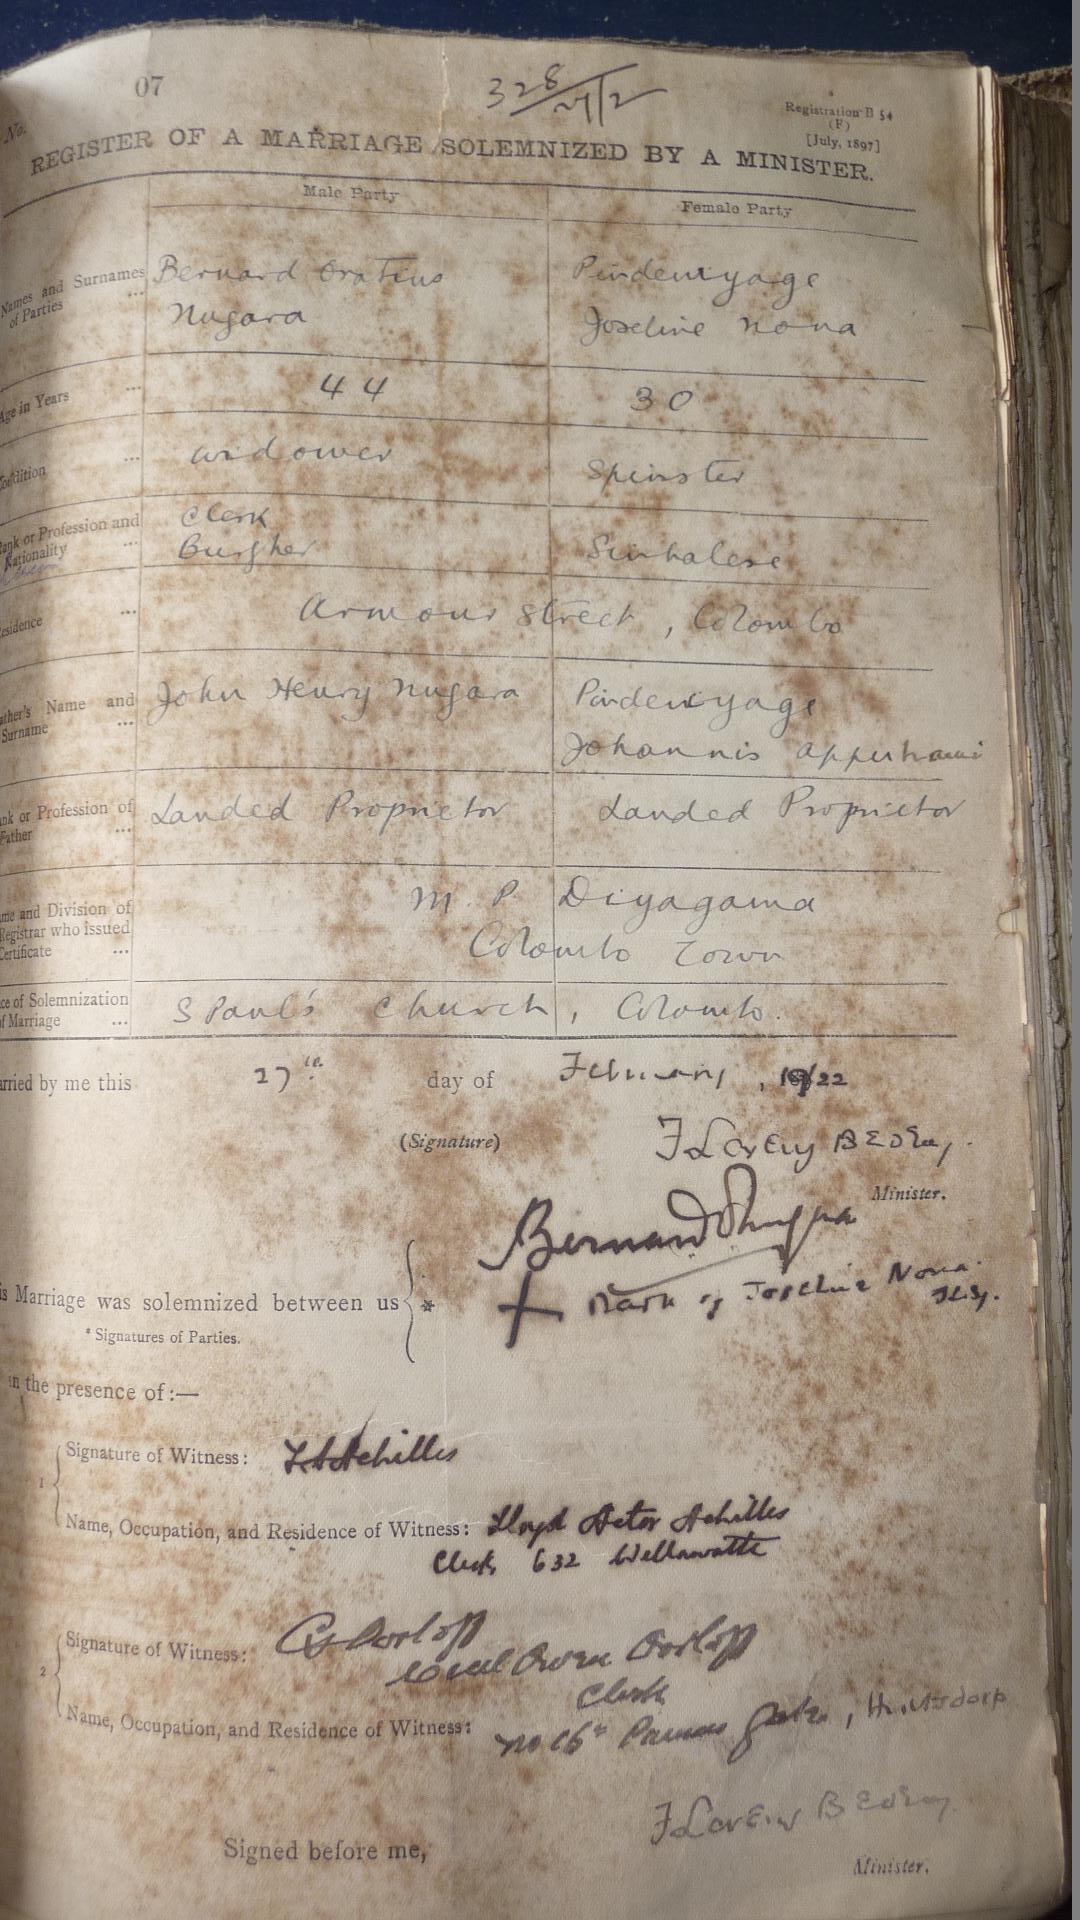 No. 07
328
Registration B 54
(F)
[July, 1897]
REGISTER OF A MARRIAGE SOLEMNIZED BY A MINISTER.
Male Party Female Party
Names and Surnames of Parties ... Bernard Oratius Nugara
Pindeniyage Joseline Nona
Age in Years ... 44 30
Condition ... widower Spinster
Rank or Profession and Nationality ... Clerk Burgher Sinhalese
Residence ... Armour Street, Colombo
Father's Name and Surname ... John Henry Nugara
Pindeniyage Johannis Appuhami
Rank or Profession of Father ... Landed Proprietor Landed Proprietor
Name and Division of Registrar who issued Certificate ... M. P. Diyagama
Colombo Town
Place of Solemnization of Marriage ... S Paul's Church, Colombo.
Married by me this 27th day of February, 1922
(Signature)
Minister.
Bernard
This Marriage was solemnized between us *
+ Mark of Joseline Nona
* Signatures of Parties.
in the presence of:—
1 Signature of Witness: Achilles
Name, Occupation, and Residence of Witness: Lloyd Hector Achilles
Clerk 632 Wellawatte
2 Signature of Witness: Orloff
Cecil Owen Orloff
Clerk
Name, Occupation, and Residence of Witness: No 16 , Hulftsdorp
Signed before me,
Minister.